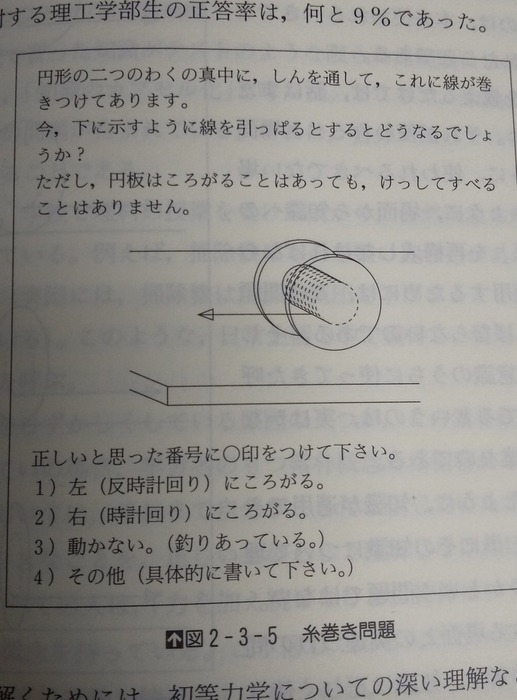 対する理工学部生の正答率は，何と９％であった。
円形の二つのわくの真中に，しんを通して，これに線が巻
きつけてあります。
今，下に示すように線を引っぱるとするとどうなるでしょ
うか？
ただし，円板はころがることはあっても，けっしてすべる
ことはありません。
正しいと思った番号に○印をつけて下さい。
1）左（反時計回り）にころがる。
2）右（時計回り）にころがる。
3）動かない。（釣りあっている。）
4）その他（具体的に書いて下さい。）
図2-3-5　糸巻き問題
解くためには，初等力学についての深い理解な